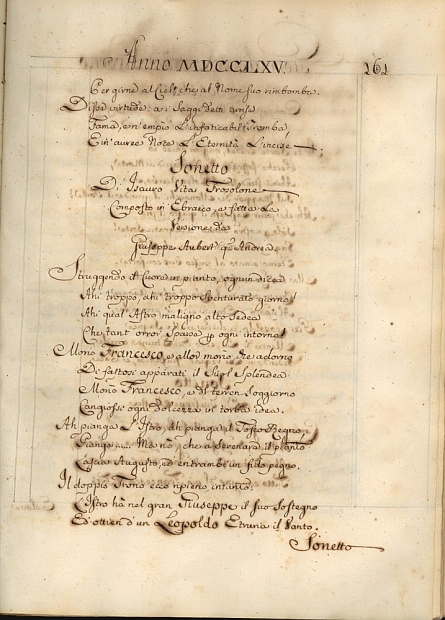 Anno MDCCLXV. 161
Per girne al Ciel, che al Nome suo rimbomba.
Disse virtude: a i Saggi detti arrise
Fama, e n'empiò l'infaticabil Tromba,
E in auree Note l'Eternità l'incise.
Sonetto
Di Isauro Vita Trosolone
Composto in Ebraico, e fatta la
Versione da
Giuseppe Aubert Andrea.
Struggendo il Cuore in pianto, ognun dicea
Ahi troppo, ahi troppo sventurato giorno!
Ahi qual Astro maligno alto sedea
Che tant' orror sparse p ogni intorno!
Morio Francesco, e allor morio, che adorno
Di fastosi apparati il Suol splendea.
Morio Francesco, e del terren soggiorno
Cangiossi ogni dolcezza in torba idea.
Ah pianga l'Istro, ah pianga il Tosco Regno;
Pianga..... Ma nò, che a serenare il pianto
Lascia Augusto, ed entrambi un fido pegno.
Il doppio Trono ecco ripieno intanto:
L'Istro hà nel gran Giuseppe il suo sostegno
Ed ottien d'un Leopoldo Etruria il Vanto.
Sonetto